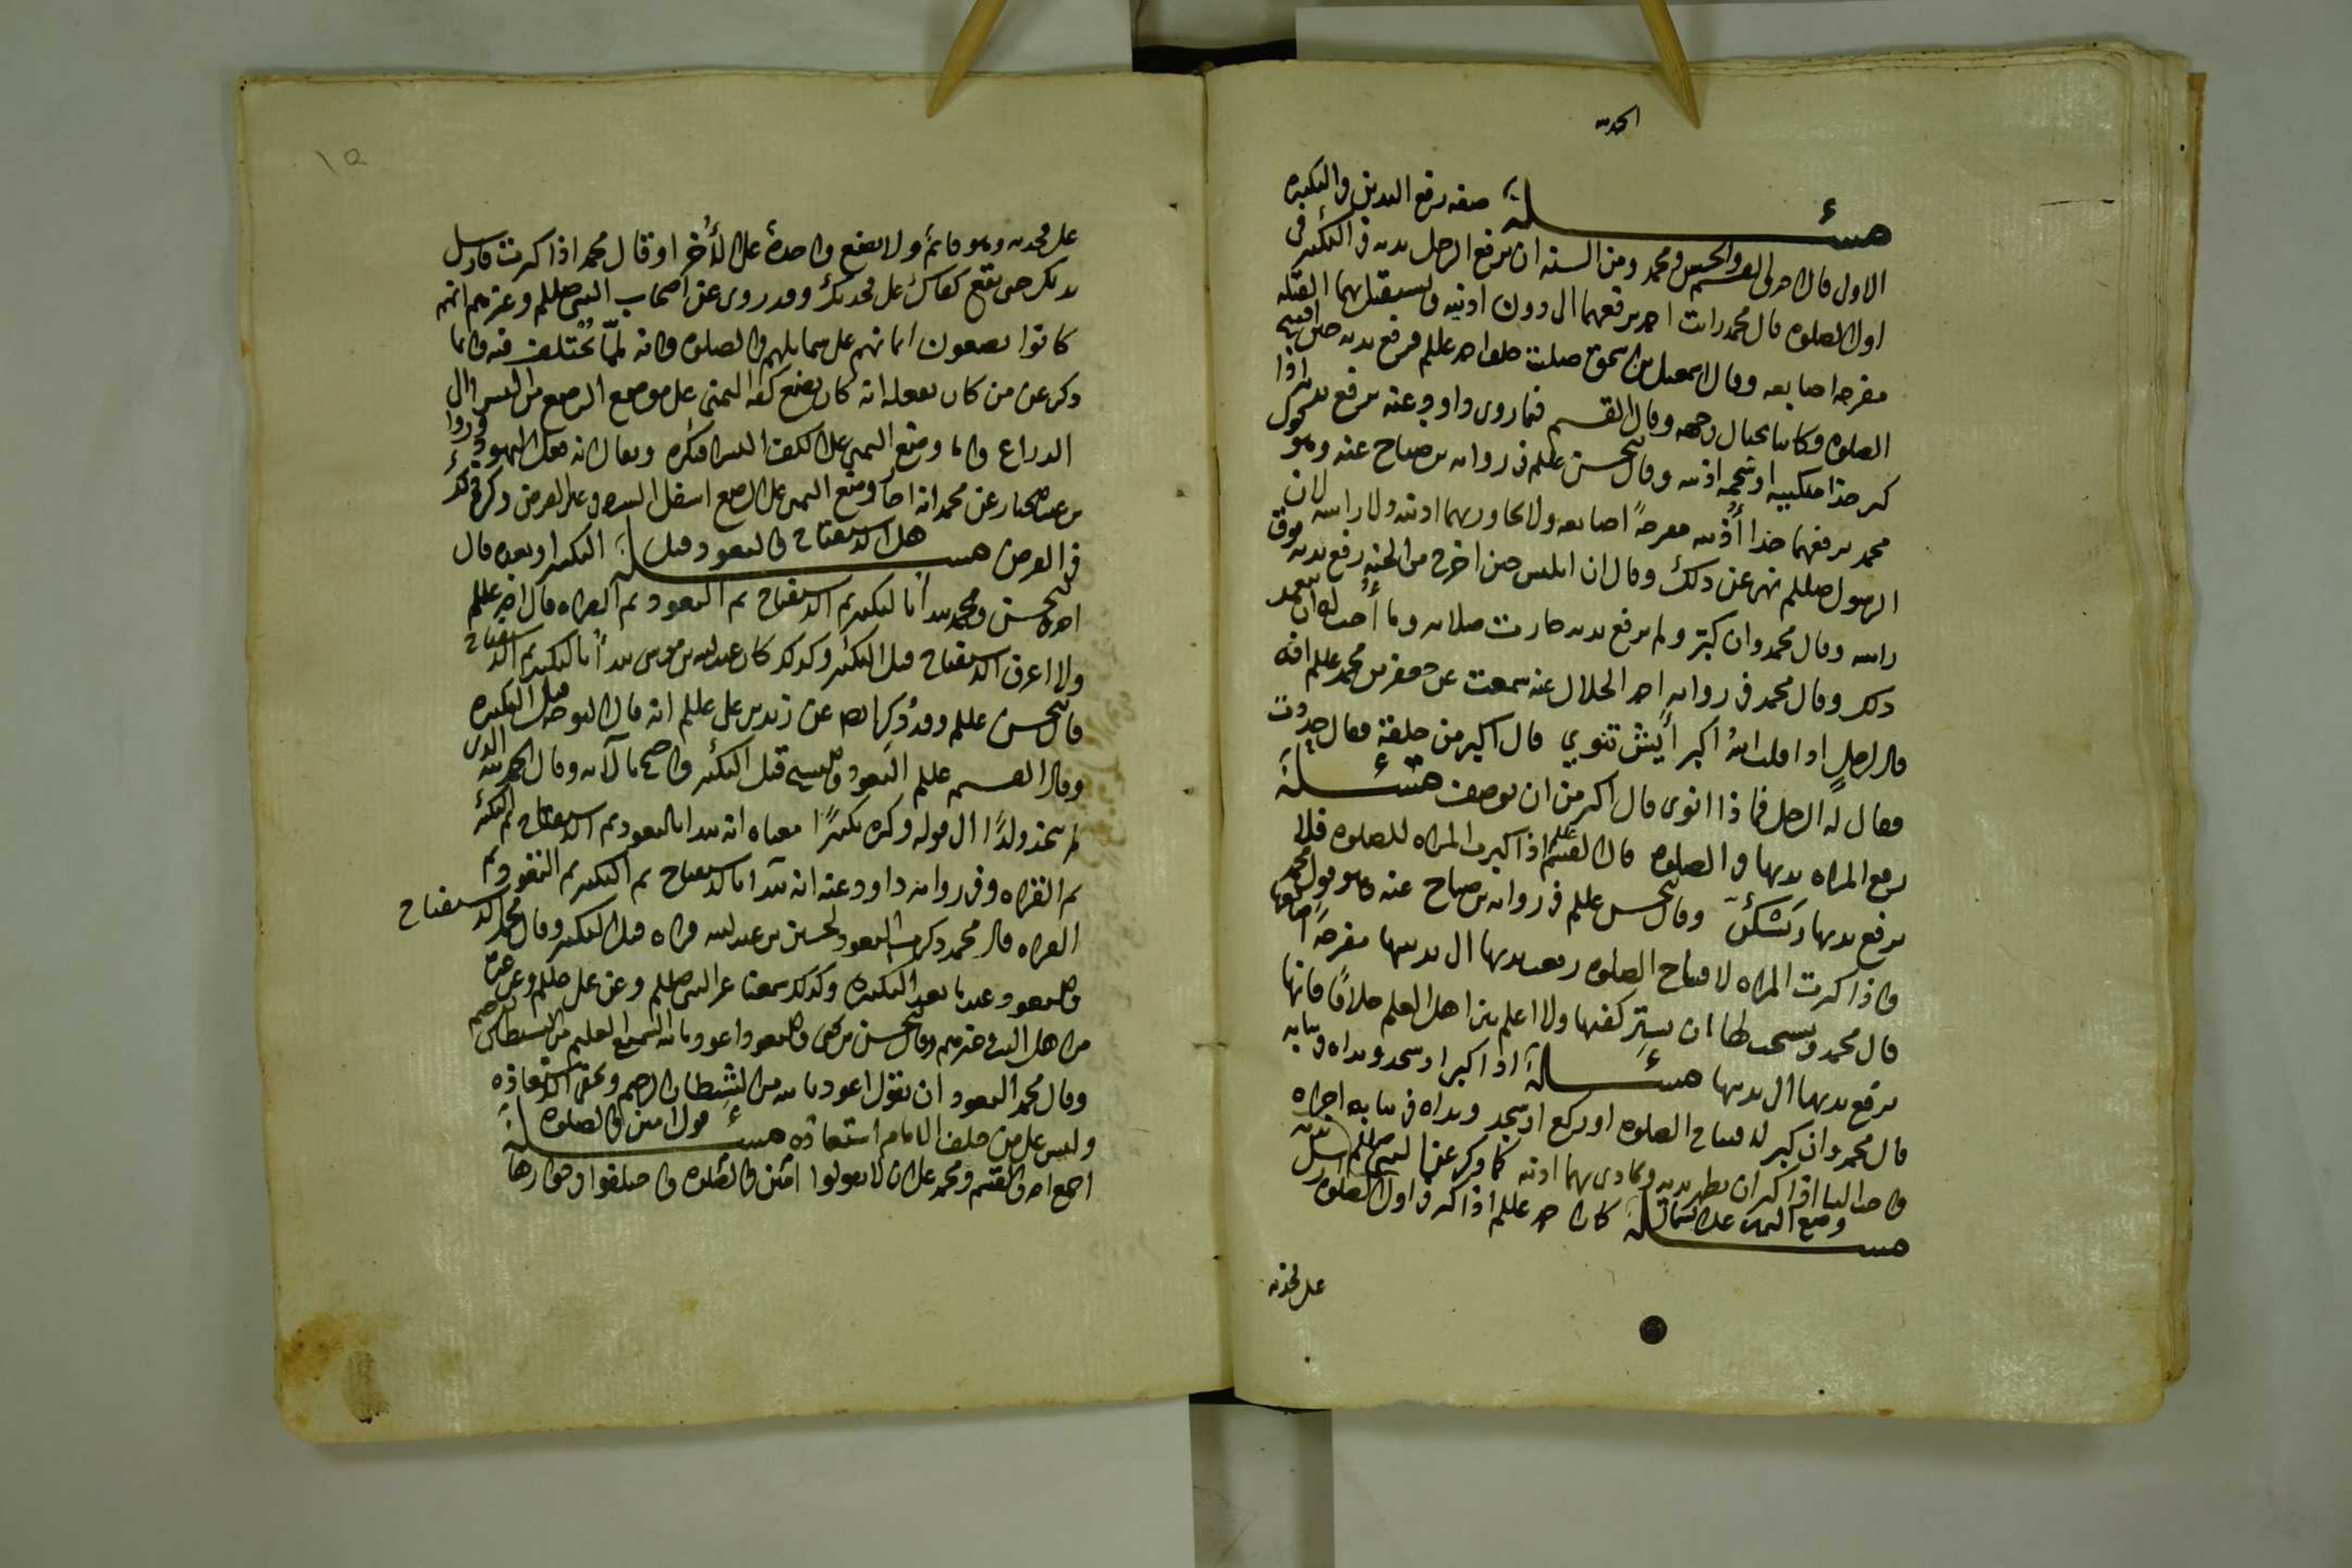 الحمد لله
مسئلة صفة رفع اليدين والتكبيره
الاولى قال احمد والقسم والحسن ومحمد ومن السنه ان يرفع الرجل يديه في التكبير في
اول الصلوه قال محمد رايت احمد يرفعهما الى دون اذنيه ويستقبل بهما القبله
مفرجه اصابعه وقال اسمعيل بن اسحق صليت خلف احمد عللم فرفع يديه حين افتتح
الصلوه وكانتا بحيال وجهه وقال القسم فيما روى داود عنه يرفع يديه اذا
كبر حذا منكبيه او شحمه اذنيه وقال الحسن عللم في روايه بن صباح عنه وهو قول
محمد يرفعهما حذا أذنيه مفرجةً اصابعه ولا يجاوز بهما اذنيه ولا راسه لان
الرسول صللم نهى عن ذلك وقال ان ابليس حين اخرج من الجنه رفع يديه فوق
راسه وقال محمد وان كبّر ولم يرفع يديه جازت صلاته وما أُحب له ان يتعمد
ذلك وقال محمد في روايه احمد الخلال عنه سمعت عن جعفر بن محمد عللم انه
قال لرجلٍ اذا قلت اللهُ اكبر أَيش تنوي قال اكبر من خلقه فقال حددت
فقال له الرجل فماذا انوي قال اكبر من ان يوصف مسئلة
ترفع المراه يديها في الصلوه قال القسم عللم اذا كبرت المراه للصلوه فلا
ترفع يديها وقال الحسن عللم في روايه بن صباح عنه وهو قول محمد
واذا كبرت المراه لافتتاح الصلوه رفعت يديها الى ثدييها مفرجةً اصابعها
قال محمد ويستحب لها ان تستر كفيها ولا اعلم بين اهل العلم خلافًا فانها
ترفع يديها الى ثدييها مسئلة اذا كبر او سجد ويداه في ثيابه
قال محمد وان كبر لافتتاح الصلوه او ركع او سجد ويداه في ثيابه اجزاه
واحب الينا اذا كبر ان يظهر يديه ويحاذي بهما اذنيه كما ذكر عن النبي صللم
مسئلة وضع اليمين على الشمال كان احمد عللم اذا كبر في اول الصلوه ارسل يديه
على فخذيه
١٥
على فخذيه وهو قائمٌ ولا يضع واحدةً على الأُخرا وقال محمد اذا كبرت فارسل
يديك حتى تقع كفاك على فخذيك وقد روي عن اصحاب النبي صللم وعن غيرهم انهم
كانوا يضعون ايمانهم على شمايلهم في الصلوه وانه لممّا يُختلف فيه وانما
ذكر عن من كان يفعله انه كان يضع كفه اليمنى على موضع الرصغ من اليسرا الى
الذراع واما وضع اليمين على الكف اليسرا فنكره ويقال انه فعل اليهود وروا
بن عبد الجبار عن محمد انه اجاز وضع اليمنى على الرصغ اسفل السره في غير الفرض وكره ذلك
في الفرض مسئلة هل الاستفتاح والتعوذ قبل التكبير او بعده قال
احمد والحسن ومحمد يبدأ بالتكبير ثم الاستفتاح ثم التعوذ ثم القراه قال احمد عللم
ولا اعرف الاستفتاح قبل التكبير وكذلك كان عبد الله بن موسى يبدأ بالتكبير ثم الاستفتاح
قال الحسن عللم وقد ذُكر ايضا عن زيد بن علي عللم انه قال التوجه قبل التكبيره
وقال القسم عللم التعوذ قبل التكبير واحتج بالآيه وقال الحمد لله الذي
لم يتخذ ولدًا الى قوله وكبره تكبيرًا معناه انه يبدا بالتعوذ ثم الاستفتاح ثم التكبير
ثم القراه وفي روايه داود عنه انه يبدا بالاستفتاح ثم التكبير ثم التعوذ ثم
القراه قال محمد ذكرت التعوذ للحسين بن عبد الله فراه قبل التكبير وقال محمد الاستفتاح
والتعوذ عندنا بعد التكبيره وكذلك سمعنا عن النبي صللم وعن علي صللم وعن عده
من اهل البيت وغيرهم وقال الحسن بن يحيى والتعوذ اعوذ بالله السميع العليم من الشيطان الرجيم
وقال محمد التعوذ ان تقول اعوذ بالله من الشيطان الرجيم ويخفي الاستعاذه
وليس على من خلف الامام استعاذه مسئلة قول امين في الصلوه
اجمع احمد والقسم ومحمد على ان لا يقولوا امين في الصلوه واختلفوا في جوازها